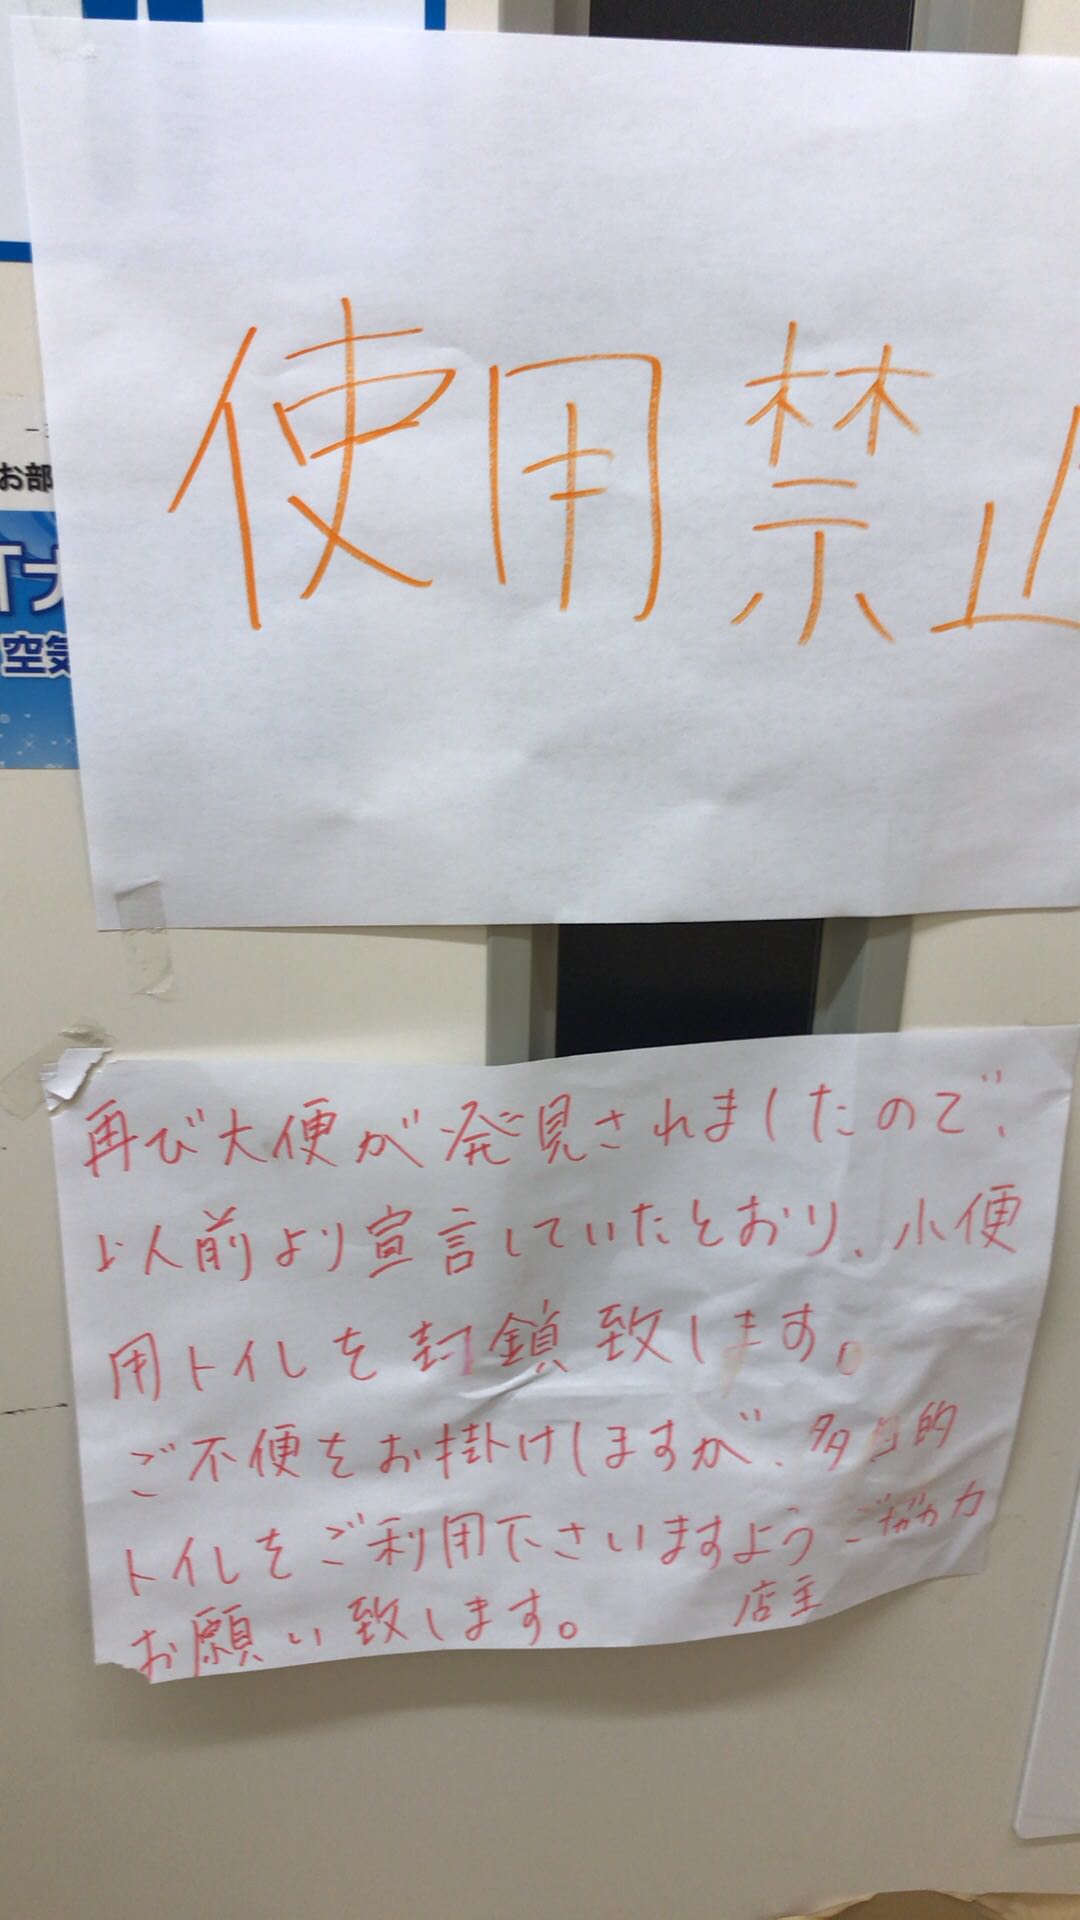 使用禁止
お部
「ナ
空気
再び大便が発見されましたので、
以前より宣言していたとおり、小便
用トイレを封鎖致します。
ご不便をお掛けしますが、多目的
トイレをご利用下さいますようご協力
お願い致します。 店主